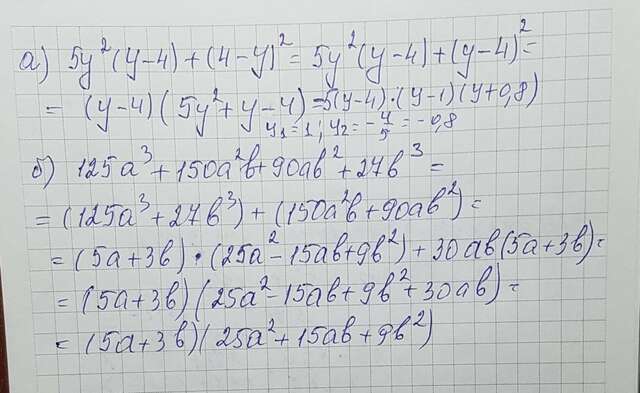 а) 5y²(y-4)+(4-y)² = 5y²(y-4)+(y-4)² =
= (y-4)(5y²+y-4) = 5(y-4)·(y-1)(y+0,8)
y₁=1; y₂=-4/5=-0,8
б) 125a³+150a²b+90ab²+27b³ =
= (125a³+27b³)+(150a²b+90ab²) =
= (5a+3b)·(25a²-15ab+9b²)+30ab(5a+3b) =
= (5a+3b)(25a²-15ab+9b²+30ab) =
= (5a+3b)(25a²+15ab+9b²)